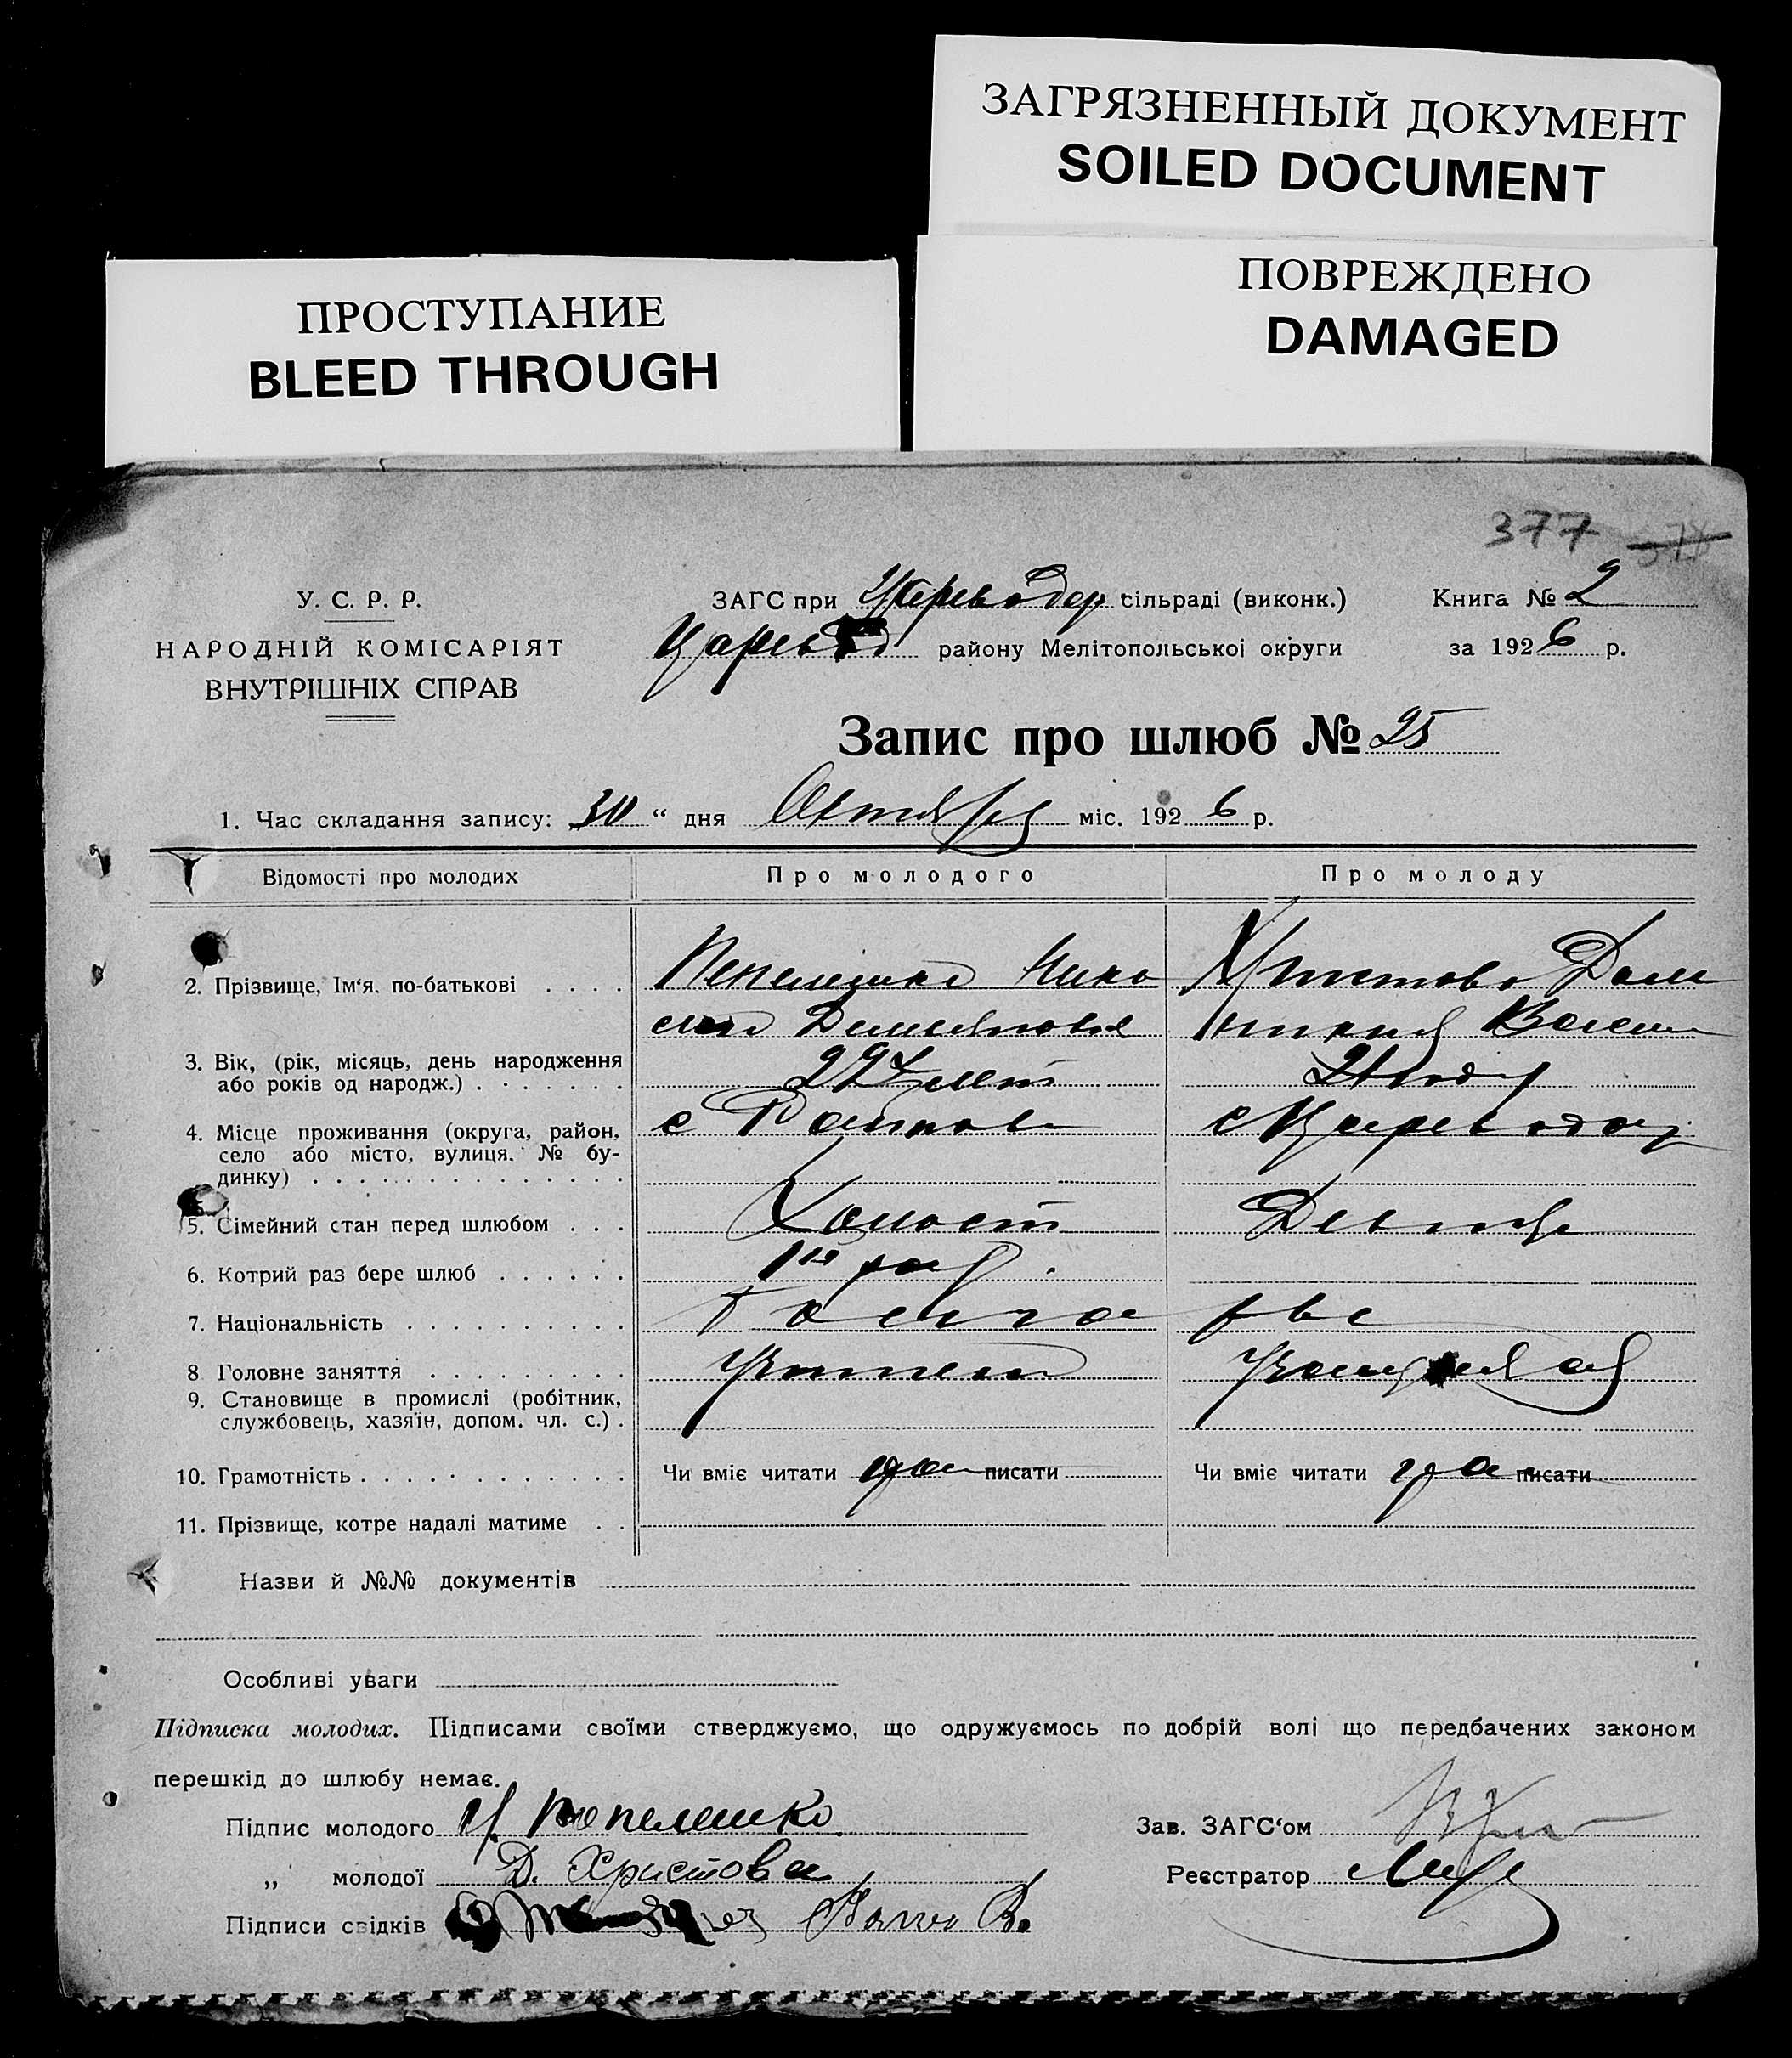 ЗАГРЯЗНЕННЫЙ ДОКУМЕНТ
SOILED DOCUMENT
ПОВРЕЖДЕНО
DAMAGED
ПРОСТУПАНИЕ
BLEED THROUGH
377
У. С. Р. Р.
НАРОДНІЙ КОМІСАРІЯТ
ВНУТРІШНІХ СПРАВ
ЗАГС при Цареводар сільраді (виконк.)
Царевод району Мелітопольської округи
Книга № 2
за 1926 р.
Запис про шлюб № 25
1. Час складання запису: 30 “ дня Октября міс. 1926 р.
Відомості про молодих Про молодого Про молоду
2. Прізвище, Ім‘я, по-батькові . . . . Пепелешко Нико Христова Дом
3. Вік, (рік, місяць, день народження
або років од народж.) . . . . . . . лет
4. Місце проживання (округа, район, с с Цареводар
село або місто, вулиця. № бу-
динку) . . . . . . . . . . . . . .
5. Сімейний стан перед шлюбом . . . Холост Девица
6. Котрий раз бере шлюб . . . . . . 1й раз.
7. Національність . . . . . . . . . . Болга ре
8 Головне заняття . . . . . . . . .
9. Становище в промислі (робітник,
службовець, хазяїн, допом. чл. с.) .
10. Грамотність . . . . . . . . . . . . Чи вміє читати да писати Чи вміє читати да писати
11. Прізвище, котре надалі матиме . .
Назви й №№ документів
Особливі уваги
Підписка молодих. Підписами своїми стверджуємо, що одружуємось по добрій волі що передбачених законом
перешкід до шлюбу немає.
Підпис молодого Н. Пепелешко
Зав. ЗАГС‘ом
„ молодої Д. Христова
Реєстратор
Підписи свідків